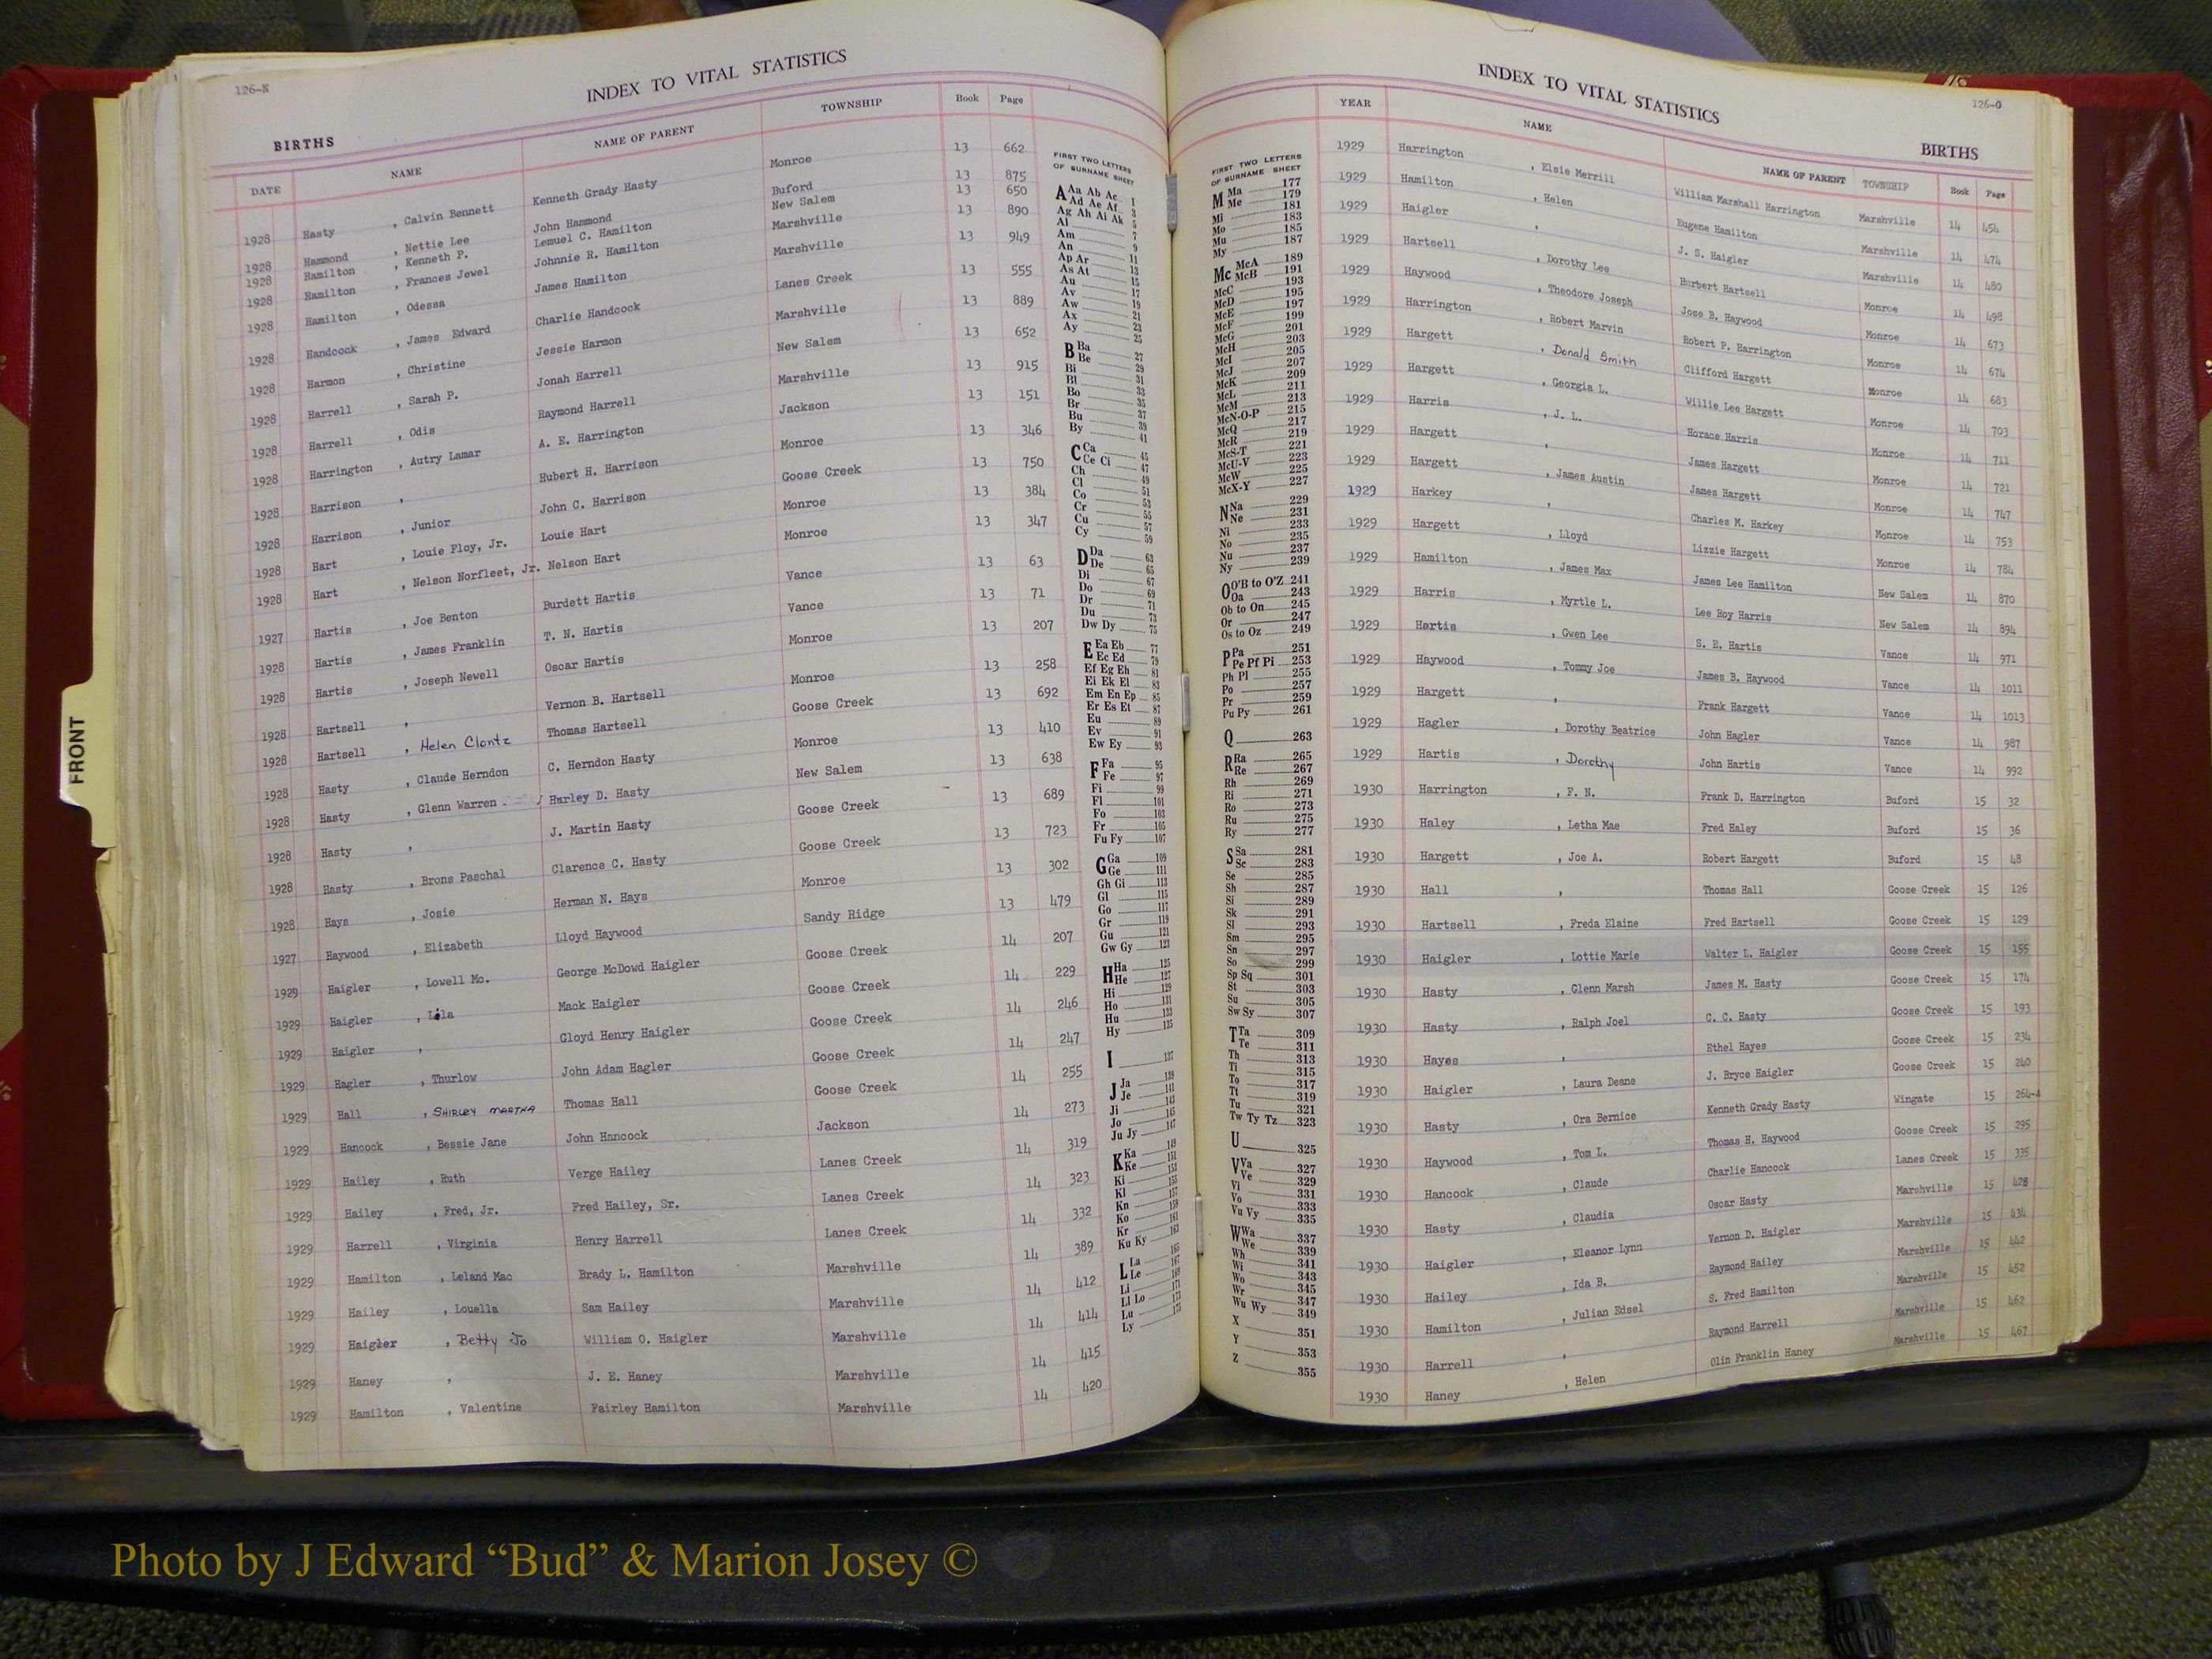 126-N
INDEX TO VITAL STATISTICS
BIRTHS
DATE NAME NAME OF PARENT TOWNSHIP Book Page
1928 Hasty , Calvin Bennett Kenneth Grady Hasty Monroe 13 662
1928 Hammond , Nettie Lee John Hammond Buford 13 875
1928 Hamilton , Kenneth P. Lemuel C. Hamilton New Salem 13 650
1928 Hamilton , Frances Jewel Johnnie R. Hamilton Marshville 13 890
1928 Hamilton , Odessa James Hamilton Marshville 13 949
1928 Handcock , James Edward Charlie Handcock Lanes Creek 13 555
1928 Harmon , Christine Jessie Harmon Marshville 13 889
1928 Harrell , Sarah P. Jonah Harrell New Salem 13 652
1928 Harrell , Odis Raymond Harrell Marshville 13 915
1928 Harrington , Autry Lamar A. E. Harrington Jackson 13 151
1928 Harrison , Hubert H. Harrison Monroe 13 346
1928 Harrison , Junior John C. Harrison Goose Creek 13 750
1928 Hart , Louie Floy, Jr. Louie Hart Monroe 13 384
1928 Hart , Nelson Norfleet, Jr. Nelson Hart Monroe 13 347
1927 Hartis , Joe Benton Burdett Hartis Vance 13 63
1928 Hartis , James Franklin T. N. Hartis Vance 13 71
1928 Hartis , Joseph Newell Oscar Hartis Monroe 13 207
1928 Hartsell , Vernon B. Hartsell Monroe 13 258
1928 Hartsell , Helen Clontz Thomas Hartsell Goose Creek 13 692
1928 Hasty , Claude Herndon C. Herndon Hasty Monroe 13 410
1928 Hasty , Glenn Warren Hurley D. Hasty New Salem 13 638
1928 Hasty , J. Martin Hasty Goose Creek 13 689
1928 Hasty , Brons Paschal Clarence C. Hasty Goose Creek 13 723
1928 Hays , Josie Herman N. Hays Monroe 13 302
1927 Haywood , Elizabeth Lloyd Haywood Sandy Ridge 13 479
1929 Haigler , Lowell Mc. George McDowd Haigler Goose Creek 14 207
1929 Haigler , Lila Mack Haigler Goose Creek 14 229
1929 Haigler , Gloyd Henry Haigler Goose Creek 14 246
1929 Hagler , Thurlow John Adam Hagler Goose Creek 14 247
1929 Hall , SHIRLEY MARTHA Thomas Hall Goose Creek 14 255
1929 Hancock , Bessie Jane John Hancock Jackson 14 273
1929 Hailey , Ruth Verge Hailey Lanes Creek 14 319
1929 Hailey , Fred, Jr. Fred Hailey, Sr. Lanes Creek 14 323
1929 Harrell , Virginia Henry Harrell Lanes Creek 14 332
1929 Hamilton , Leland Mac Brady L. Hamilton Marshville 14 389
1929 Hailey , Louella Sam Hailey Marshville 14 412
1929 Haigler , Betty Jo William O. Haigler Marshville 14 414
1929 Haney , J. E. Haney Marshville 14 415
1929 Hamilton , Valentine Fairley Hamilton Marshville 14 420
FIRST TWO LETTERS
OF SURNAME SHEET
A Aa Ab Ac 1
Ad Ae Af 3
Ag Ah Ai Ak 5
Al 7
Am 9
An 11
Ap Ar 13
As At 15
Au 17
Av 19
Aw 21
Ax 23
Ay 25
B Ba 27
Be 29
Bi 31
Bl 33
Bo 35
Br 37
Bu 39
By 41
C Ca 45
Ce Ci 47
Ch 49
Cl 51
Co 53
Cr 55
Cu 57
Cy 59
D Da 63
De 65
Di 67
Do 69
Dr 71
Du 73
Dw Dy 75
E Ea Eb 77
Ec Ed 79
Ef Eg Eh 81
Ei Ek El 83
Em En Ep 85
Er Es Et 87
Eu 89
Ev 91
Ew Ey 93
F Fa 95
Fe 97
Fi 99
Fl 101
Fo 103
Fr 105
Fu Fy 107
G Ga 109
Ge 111
Gh Gi 113
Gl 115
Go 117
Gr 119
Gu 121
Gw Gy 123
H Ha 125
He 127
Hi 129
Ho 131
Hu 133
Hy 135
I 137
J Ja 139
Je 141
Ji 143
Jo 145
Ju Jy 147
K Ka 149
Ke 151
Ki 153
Kl 155
Kn 157
Ko 159
Kr 161
Ku Ky 163
L La 165
Le 167
Li 169
Ll Lo 171
Lu 173
Ly
FRONT
126-O
INDEX TO VITAL STATISTICS
BIRTHS
FIRST TWO LETTERS
OF SURNAME SHEET
M Ma 177
Me 179
Mi 181
Mo 183
Mu 185
My 187
Mc McA 189
McB 191
McC 193
McD 195
McE 197
McF 199
McG 201
McH 203
McI 205
McJ 207
McK 209
McL 211
McM 213
McN-O-P 215
McQ 217
McR 219
McS-T 221
McU-V 223
McW 225
McX-Y 227
N Na 229
Ne 231
Ni 233
No 235
Nu 237
Ny 239
O O'B to O'Z 241
Oa 243
Ob to On 245
Or 247
Os to Oz 249
P Pa 251
Pe Pf Pi 253
Ph Pl 255
Po 257
Pr 259
Pu Py 261
Q 263
R Ra 265
Re 267
Rh 269
Ri 271
Ro 273
Ru 275
Ry 277
S Sa 281
Sc 283
Se 285
Sh 287
Si 289
Sk 291
Sl 293
Sm 295
Sn 297
So 299
Sp Sq 301
St 303
Su 305
Sw Sy 307
T Ta 309
Te 311
Th 313
Ti 315
To 317
Tt 319
Tu 321
Tw Ty Tz 323
U 325
V Va 327
Ve 329
Vi 331
Vo 333
Vu Vy 335
W Wa 337
We 339
Wh 341
Wi 343
Wo 345
Wr 347
Wu Wy 349
X 351
Y 353
Z 355
YEAR NAME NAME OF PARENT TOWNSHIP Book Page
1929 Harrington , Elsie Merrill William Marshall Harrington Marshville 14 454
1929 Hamilton , Helen Eugene Hamilton Marshville 14 474
1929 Haigler , J. S. Haigler Marshville 14 480
1929 Hartsell , Dorothy Lee Hurbert Hartsell Monroe 14 498
1929 Haywood , Theodore Joseph Jose B. Haywood Monroe 14 673
1929 Harrington , Robert Marvin Robert P. Harrington Monroe 14 674
1929 Hargett , Donald Smith Clifford Hargett Monroe 14 683
1929 Hargett , Georgia L. Willie Lee Hargett Monroe 14 703
1929 Harris , J. L. Horace Harris Monroe 14 711
1929 Hargett , James Hargett Monroe 14 721
1929 Hargett , James Austin James Hargett Monroe 14 747
1929 Harkey , Charles M. Harkey Monroe 14 753
1929 Hargett , Lloyd Lizzie Hargett Monroe 14 784
1929 Hamilton , James Max James Lee Hamilton New Salem 14 870
1929 Harris , Myrtle L. Lee Roy Harris New Salem 14 894
1929 Hartis , Gwen Lee S. E. Hartis Vance 14 971
1929 Haywood , Tommy Joe James B. Haywood Vance 14 1011
1929 Hargett , Frank Hargett Vance 14 1013
1929 Hagler , Dorothy Beatrice John Hagler Vance 14 987
1929 Hartis , Dorothy John Hartis Vance 14 992
1930 Harrington , F. N. Frank D. Harrington Buford 15 32
1930 Haley , Letha Mae Fred Haley Buford 15 36
1930 Hargett , Joe A. Robert Hargett Buford 15 48
1930 Hall , Thomas Hall Goose Creek 15 126
1930 Hartsell , Freda Elaine Fred Hartsell Goose Creek 15 129
1930 Haigler , Lottie Marie Walter L. Haigler Goose Creek 15 155
1930 Hasty , Glenn Marsh James M. Hasty Goose Creek 15 174
1930 Hasty , Ralph Joel C. C. Hasty Goose Creek 15 193
1930 Hayes , Ethel Hayes Goose Creek 15 234
1930 Haigler , Laura Deane J. Bryce Haigler Goose Creek 15 240
1930 Hasty , Ora Bernice Kenneth Grady Hasty Wingate 15 264-A
1930 Haywood , Tom L. Thomas H. Haywood Goose Creek 15 295
1930 Hancock , Claude Charlie Hancock Lanes Creek 15 335
1930 Hasty , Claudia Oscar Hasty Marshville 15 428
1930 Haigler , Eleanor Lynn Vernon D. Haigler Marshville 15 434
1930 Hailey , Ida B. Raymond Hailey Marshville 15 442
1930 Hamilton , Julian Edsel S. Fred Hamilton Marshville 15 452
1930 Harrell , Raymond Harrell Marshville 15 462
1930 Haney , Helen Olin Franklin Haney Marshville 15 467
Photo by J Edward “Bud” & Marion Josey ©